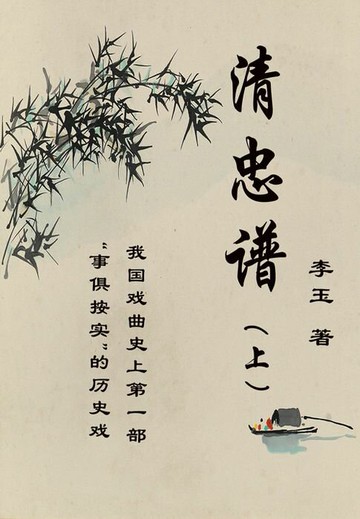 清忠谱(上)
李玉 著
我国戏曲史上第一部
“事俱按实”的历史戏